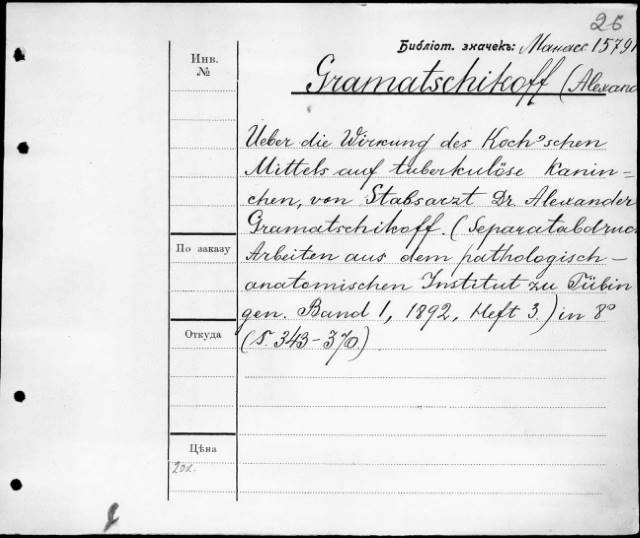 26
Библіот. значекъ: Манасс 15791
Инв.
№
Gramatschikoff (Alexand
Ueber die Wirkung des Koch'schen
Mittels auf tuberkulöse Kanin=
chen, von Stabsarzt Dr. Alexander
Gramatschikoff. (Separatabdruc
По заказу
Arbeiten aus dem pathologisch-
anatomischen Institut zu Tübin
gen. Band 1, 1892, Heft 3.) in 8°
Откуда
(S. 343-370.)
Цѣна
20к.